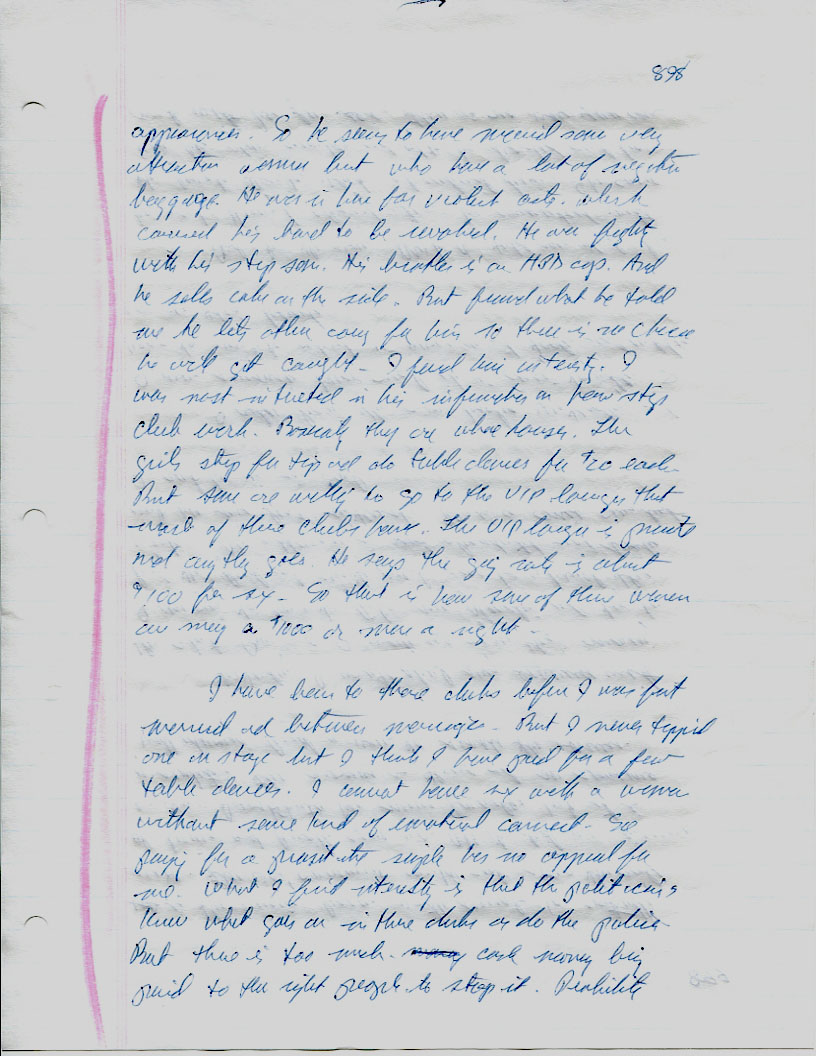 898
appearances. So he seems to have married some very
attractive women but who have a lot of negative
baggage. He was in here for violent acts. which
caused his bond to be revoked. He over fighting
with his step son. His brother is an HPD cop. And
he sells coke on the side. But from what he told
me he lets other carry for him so there is no chance
he will get caught - I find him interesting. I
was most interested in his information on how strip
club work. Basically they are whore houses. The
girls strip for tip and do table dances for $20 each
But some are willing to go to the VIP lounges that
most of these clubs have. The VIP lounge is private
and anything goes. He says the going rate is about
$100 for sex - So that is how some of these women
are making a $1000 or more a night -
I have been to these clubs before I was first
married and between marriages - But I never tipped
one on stage but I think I have paid for a few
table dances. I cannot have sex with a woman
without some kind of emotional connect - So
paying for a prostitute simple has no appeal for
me. What I find interesting is that the politicians
know what goes on in these clubs as do the police
But there is too much cash money being
paid to the right people to stop it. Probability